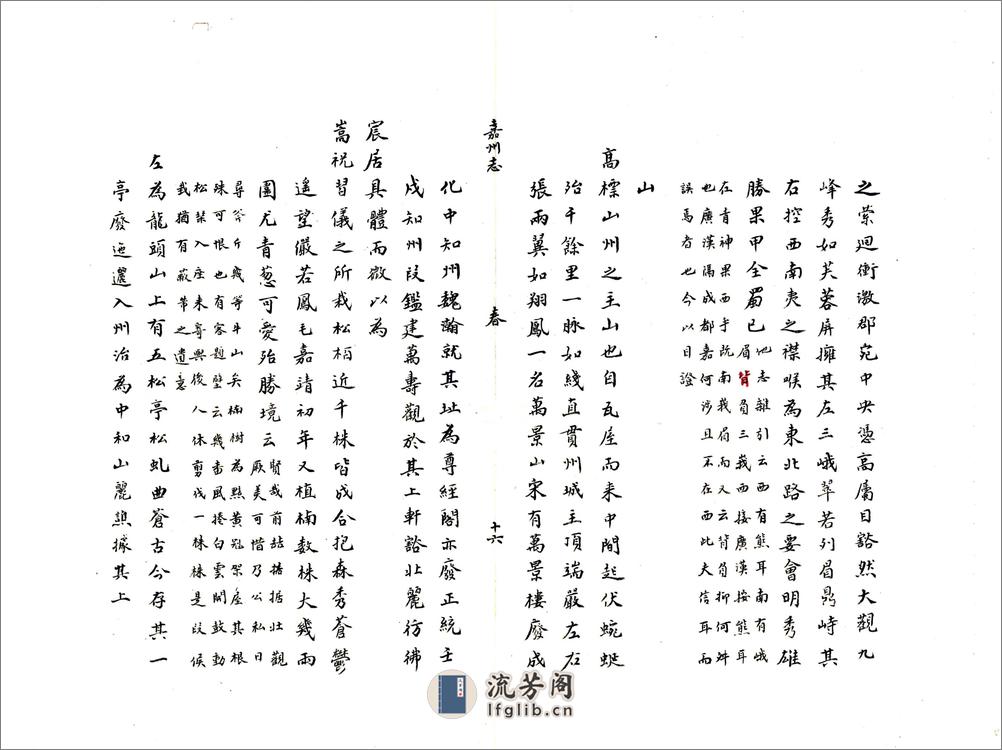 之縈迴衝激郡宛中央憑高屬目豁然大觀九
峰秀如芙蓉屏擁其左三峨翠若列眉鼎峙其
右控西南夷之襟喉為東北路之要會明秀雄
勝果甲全蜀已
地志雜引云西有熊耳南有峨
眉背負三峩西接廣漢按熊耳
在青神果西乎既南峩眉而又云背負抑何舛
也廣漢隔成都嘉何涉且不在西此大信耳而
誤焉者也今以目證
山
高標山州之主山也自瓦屋而来中間起伏蜿蜒
殆千餘里一脉如綫直貫州城主項端嚴左右
張兩翼如翔鳳一名萬景山宋有萬景樓廢成
嘉州志
春
十六
化中知州魏瀚就其址為尊經閣亦廢正統壬
戌知州段鑑建萬壽觀於其上軒豁壯麗彷彿
宸居具體而微以為
嵩祝習儀之所栽松栢近千株皆成合抱森秀蒼鬱
遥望儼若鳳毛嘉靖初年又植楠数株大幾兩
圍尤青葱可愛殆勝境云
賢哉前喆拮据壮觀
厥美可惜乃公私日
尋斧斤幾等牛山矣楠樹為黠黄冠架屋其根
殊可恨也有客題壁云幾畨風捲白雲開鼓動
松棻入座来寄與後人休剪伐一株株是段侯
栽猶有蔽芾之遺意
左為龍頭山上有五松亭松虬曲蒼古今存其一
亭廢迤邐入州治為中和山麗譙據其上
流芳阁
lfglib.cn